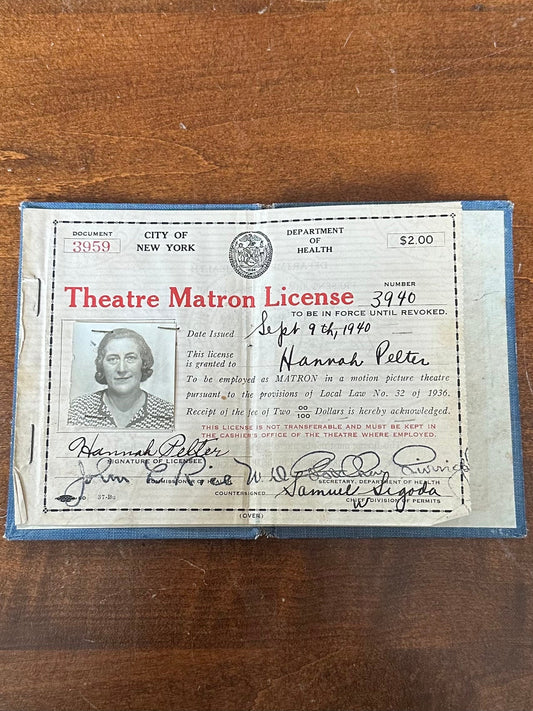 DOCUMENT
3959
CITY OF
NEW YORK
DEPARTMENT
OF
HEALTH
$2.00
Theatre Matron License
NUMBER
3940
TO BE IN FORCE UNTIL REVOKED.
Date Issued Sept 9th, 1940
This license
is granted to Hannah Pelter
To be employed as MATRON in a motion picture theatre
pursuant to the provisions of Local Law No. 32 of 1936.
Receipt of the fee of Two 00/100 Dollars is hereby acknowledged.
THIS LICENSE IS NOT TRANSFERABLE AND MUST BE KEPT IN
THE CASHIER'S OFFICE OF THE THEATRE WHERE EMPLOYED.
Hannah Pelter
SIGNATURE OF LICENSEE
John L Rice
COMMISSIONER OF HEALTH
SECRETARY, DEPARTMENT OF HEALTH
COUNTERSIGNED. Samuel Segoda
CHIEF DIVISION OF PERMITS
(OVER)